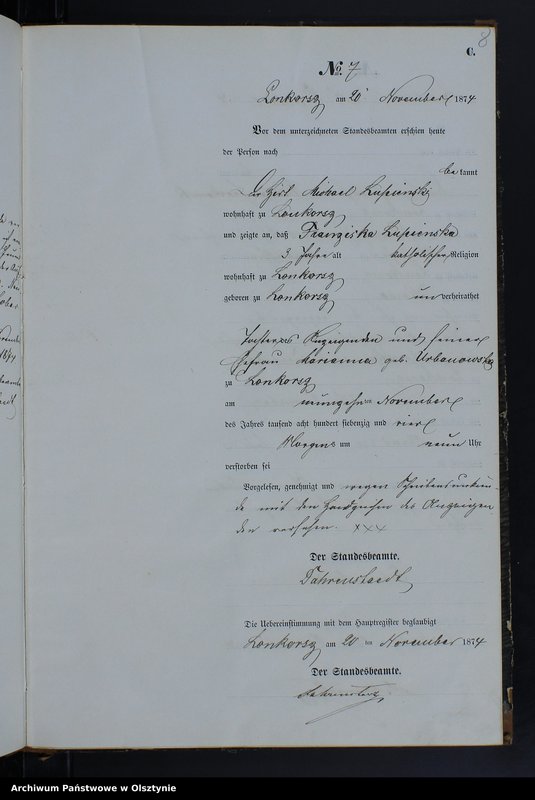 8
C.
No. 7
Lonkorsz am 20 November 1874
Vor dem unterzeichneten Standesbeamten erschien heute
der Person nach
bekannt
der Hirt Michael Lupienski
wohnhaft zu Lonkorsz
und zeigte an, daß Franziska Lupienska
3 Jahre alt katholischer Religion
wohnhaft zu Lonkorsz
geboren zu Lonkorsz unverheirathet
Tochter des Anzeigenden und seiner
Ehefrau Marianna geb. Urbanowska
zu Lonkorsz
am neunzehnten November
des Jahres tausend acht hundert siebenzig und vier
Morgens um neun Uhr
verstorben sei
Vorgelesen, genehmigt und wegen Schreibensunkun-
de mit den Handzeichen des Anzeigen
den versehen. XXX
Der Standesbeamte.
Fahrenstaedt
Die Uebereinstimmung mit dem Hauptregister beglaubigt
Lonkorsz am 20 ten November 1874
Der Standesbeamte.
Archiwum Państwowe w Olsztynie